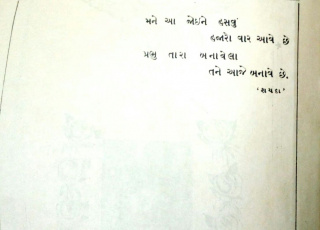 મને આ જોઇને હસવું
હજારો વાર આવે છે
પ્રભુ તારા બનાવેલા
તને આજે બનાવે છે.
‘શયદા’